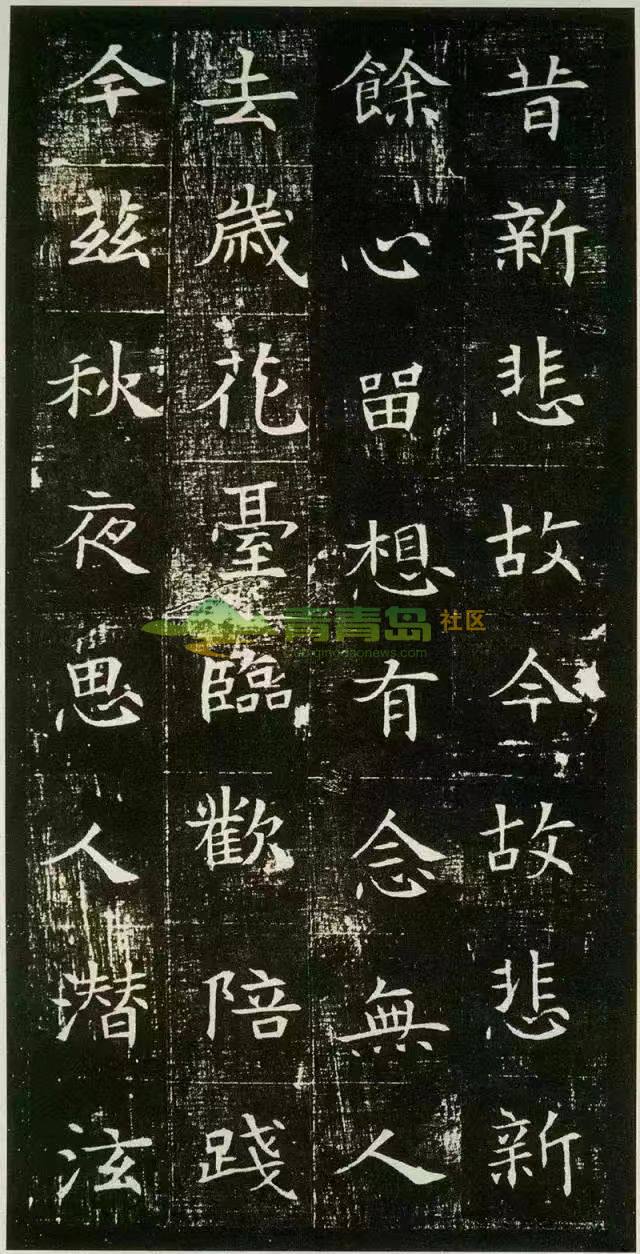 昔新悲故今故悲新
餘心留想有念無人
去歲花臺臨歡陪踐
今茲秋夜思人潜泫
青青岛社区
qingdaonews.com